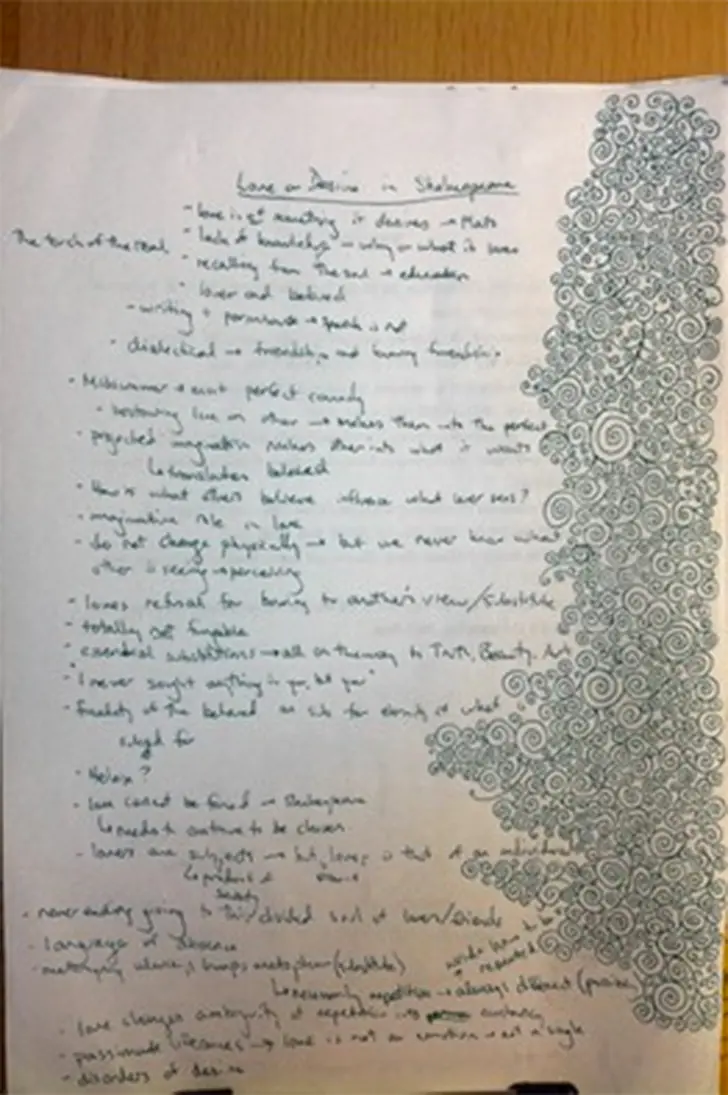 Love or Desire in Shakespeare
- love is something it desires → Plato
- lack of knowledge → why or what it loves
The torch of the
- recalling from the soul → education
- lover and beloved
- writing → speech is not
- dialectical → friendship and loving friendship
- Midsummer → most perfect comedy
- bestowing love on other → makes them into the perfect
- projected imagination makes other into what it wants
↳ translates beloved
- How is what others believe influence what lover sees?
- imaginative role in love
- do not change physically → but we never know what
other is seeing → perceiving
- loves refusal for bowing to another's view/substitute
- totally not fungible
- substitutions → all on the way to Truth, Beauty, Art
- "I never sought anything in you, but you"
- of the beloved as sub for eternity of what is
subg'd for
- Helena?
- love cannot be forced → Shakespeare
↳ needs to continue to be chosen
- lovers are subjects → but love is that of an individual
↳ product of
society
- never ending going to this divided soul of lovers/friends
- language of absence
- always metaphor (substitute)
words have to be
repeated
↳ necessarily repetition → always different (praise)
- love changes ambiguity of repetition → constancy
- passionate utterances → love is not an emotion → not a single
- disorders of desire